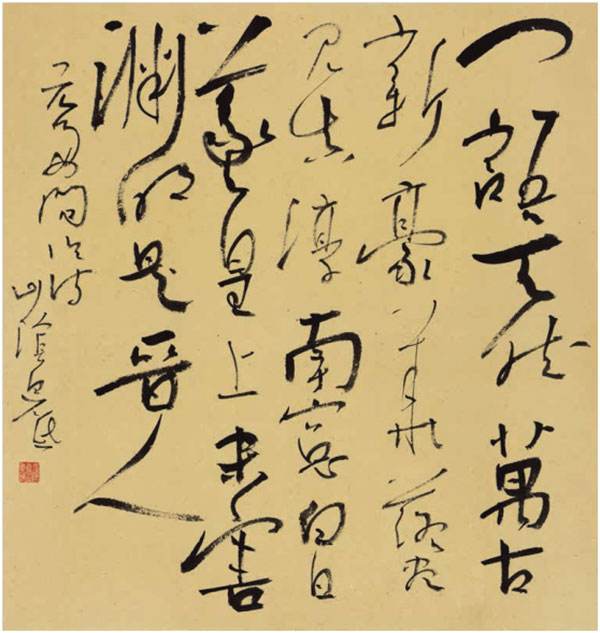 一語天然萬古
新豪華落盡
見真淳南窗白日
羲皇上未害
淵明是晉人
元好問論詩
山陰定庵